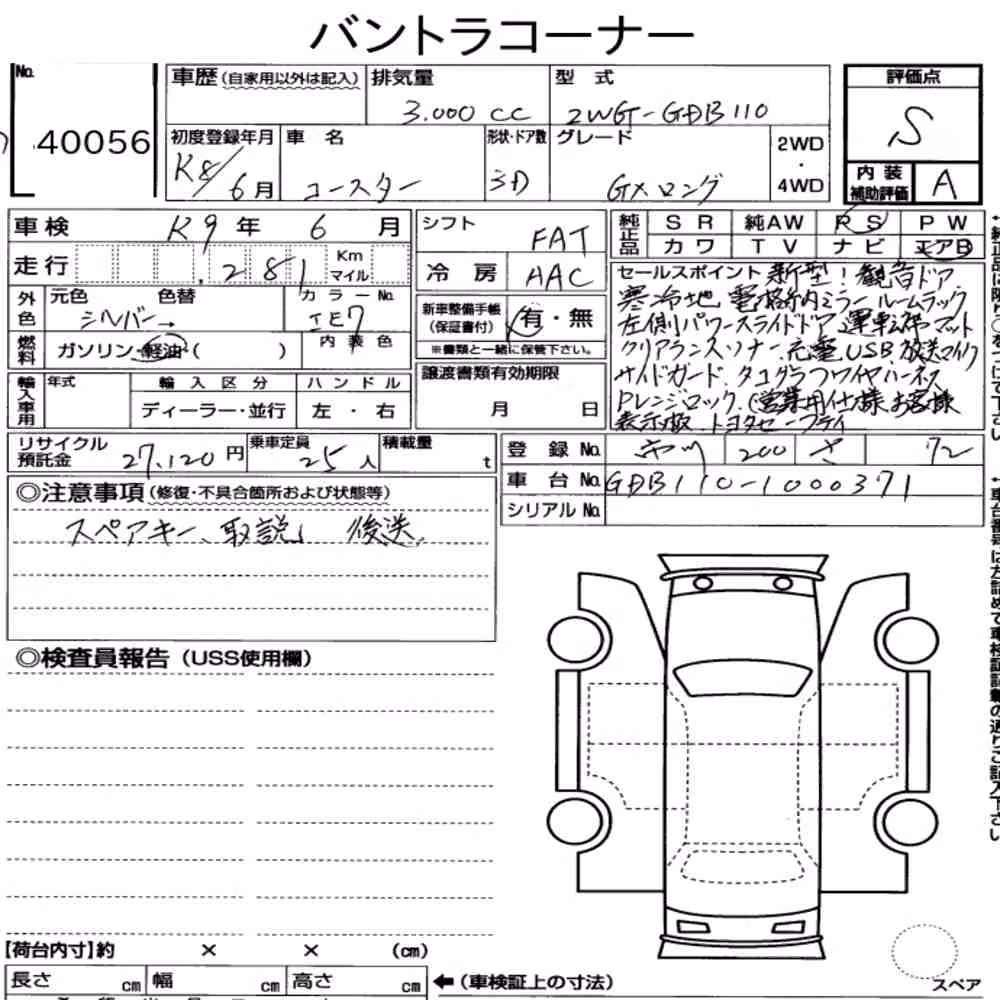 バントラコーナー
No. 40056
車歴(自家用以外は記入) 排気量 3.000 CC 型式 2WG-GDB110
評価点 S
初度登録年月 R8/6月 車名 コースター 形状・ドア数 3D グレード GXロング 2WD・4WD
内装補助評価 A
車検 R9年 6月
走行 .281 Km マイル
外色 元色 シルバー→ 色替 カラーNo. 1E7
燃料 ガソリン・軽油・( ) 内装色
輸入車用 年式 輸入区分 ディーラー・並行 ハンドル 左・右
シフト FAT
冷房 AAC
新車整備手帳(保証書付) 有・無
※書類と一緒に保管下さい。
譲渡書類有効期限 月 日
純正品 SR 純AW PS PW
カワ TV ナビ エアB
セールスポイント 新型!観音ドア
寒冷地 電格納ミラー ルームラック
左側パワースライドドア 運転席マット
クリアランスソナー.充電USB 放送マイク
サイドガード.タコグラフワイヤハーネス
Pレンジロック.(営業用仕様.お客様
表示板.トヨタセーフティ
リサイクル預託金 27,120円 乗車定員 25人 積載量 t
登録No. 200 さ 72
車台No. GDB110-1000371
シリアルNo.
◎注意事項(修復・不具合箇所および状態等)
スペアキー、取説」 後送.
◎検査員報告(USS使用欄)
【荷台内寸】約 × × (cm)
長さ cm 幅 cm 高さ cm ←(車検証上の寸法)
スペア